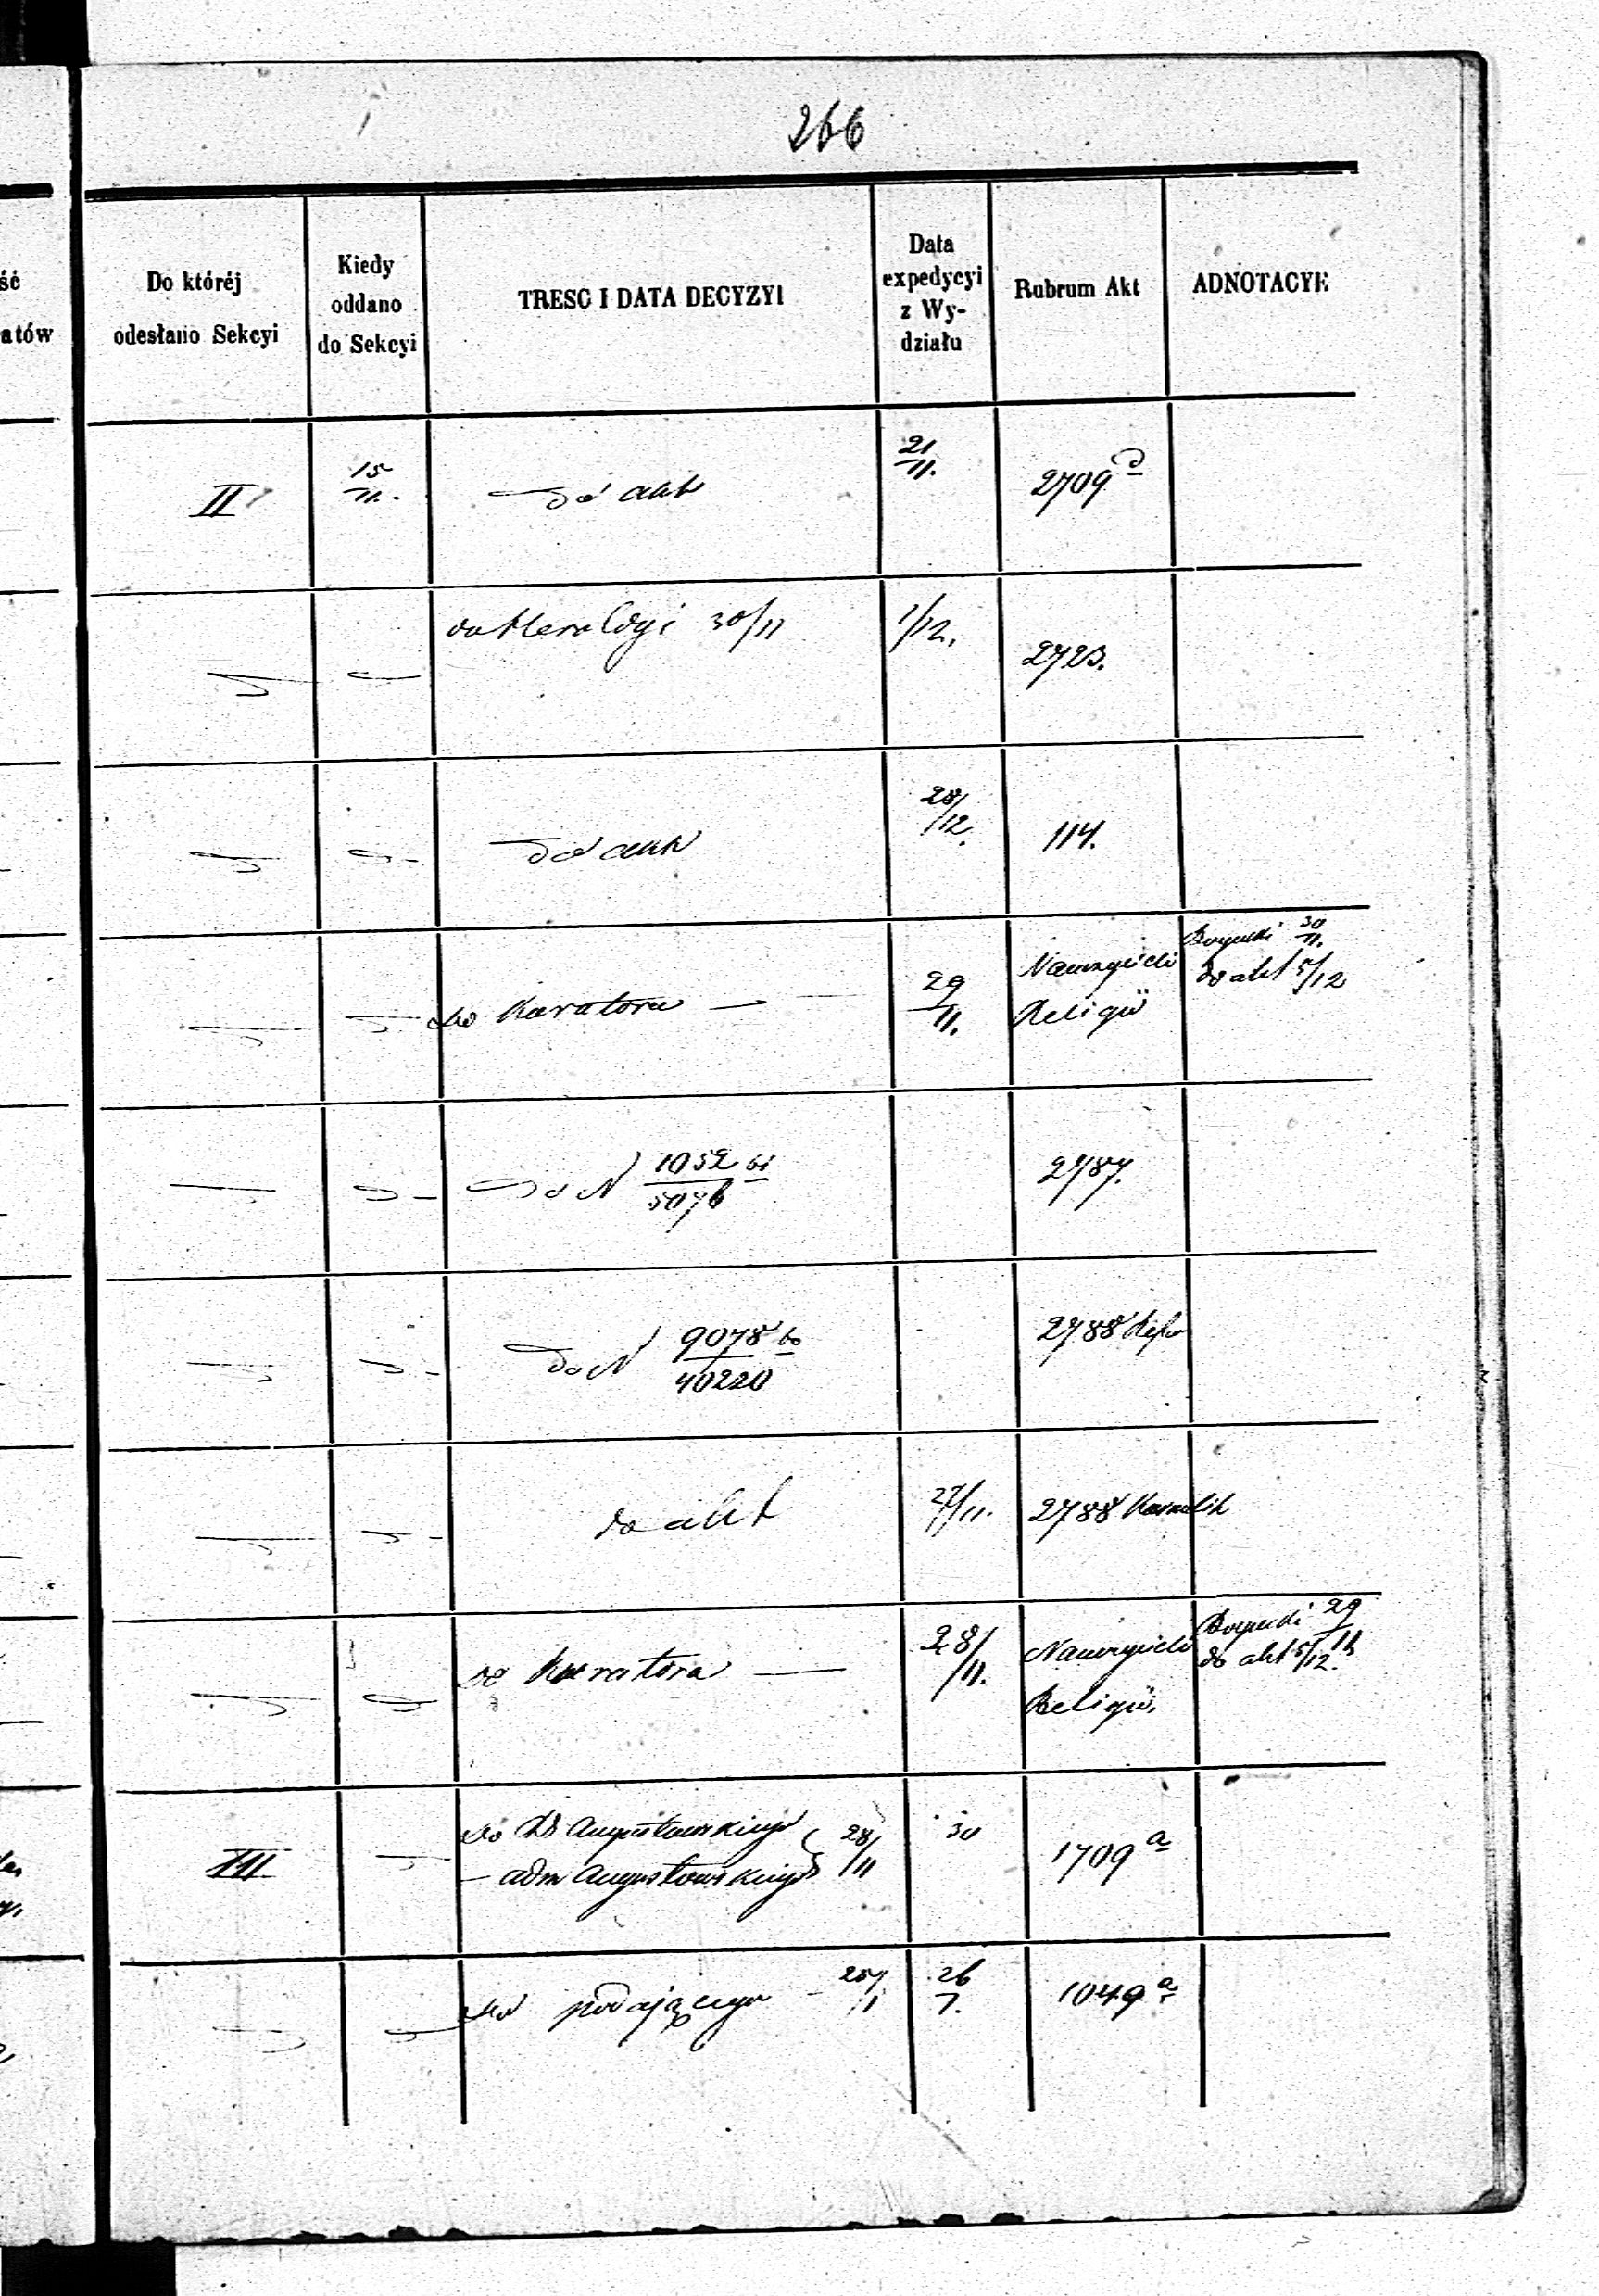 266
ść
atów
Do któréj
odesłano Sekcyi
Kiedy
oddano
do Sekcyi
TRESC I DATA DECYZYI
Data
expedycyi
z Wy-
działu
Rubrum Akt
ADNOTACYE
II 15/11. do akt 21/11. 2709
do Heraldyi 30/11 1/12. 2723.
do akt 28/12. 114.
do Kuratora — 29/11. Nauczyciele
Religii
30/11.
do akt 5/12
do N 1052/5076 2787.
do N 9078/40220 2788
do akt 27/11. 2788
do Kuratora — 28/11. Nauczyciele
Religii
29/11
do akt 5/12.
III do Augustowskiego 28/11 30 1709 a
— adm Augustowskiego
do podającego 1049 a